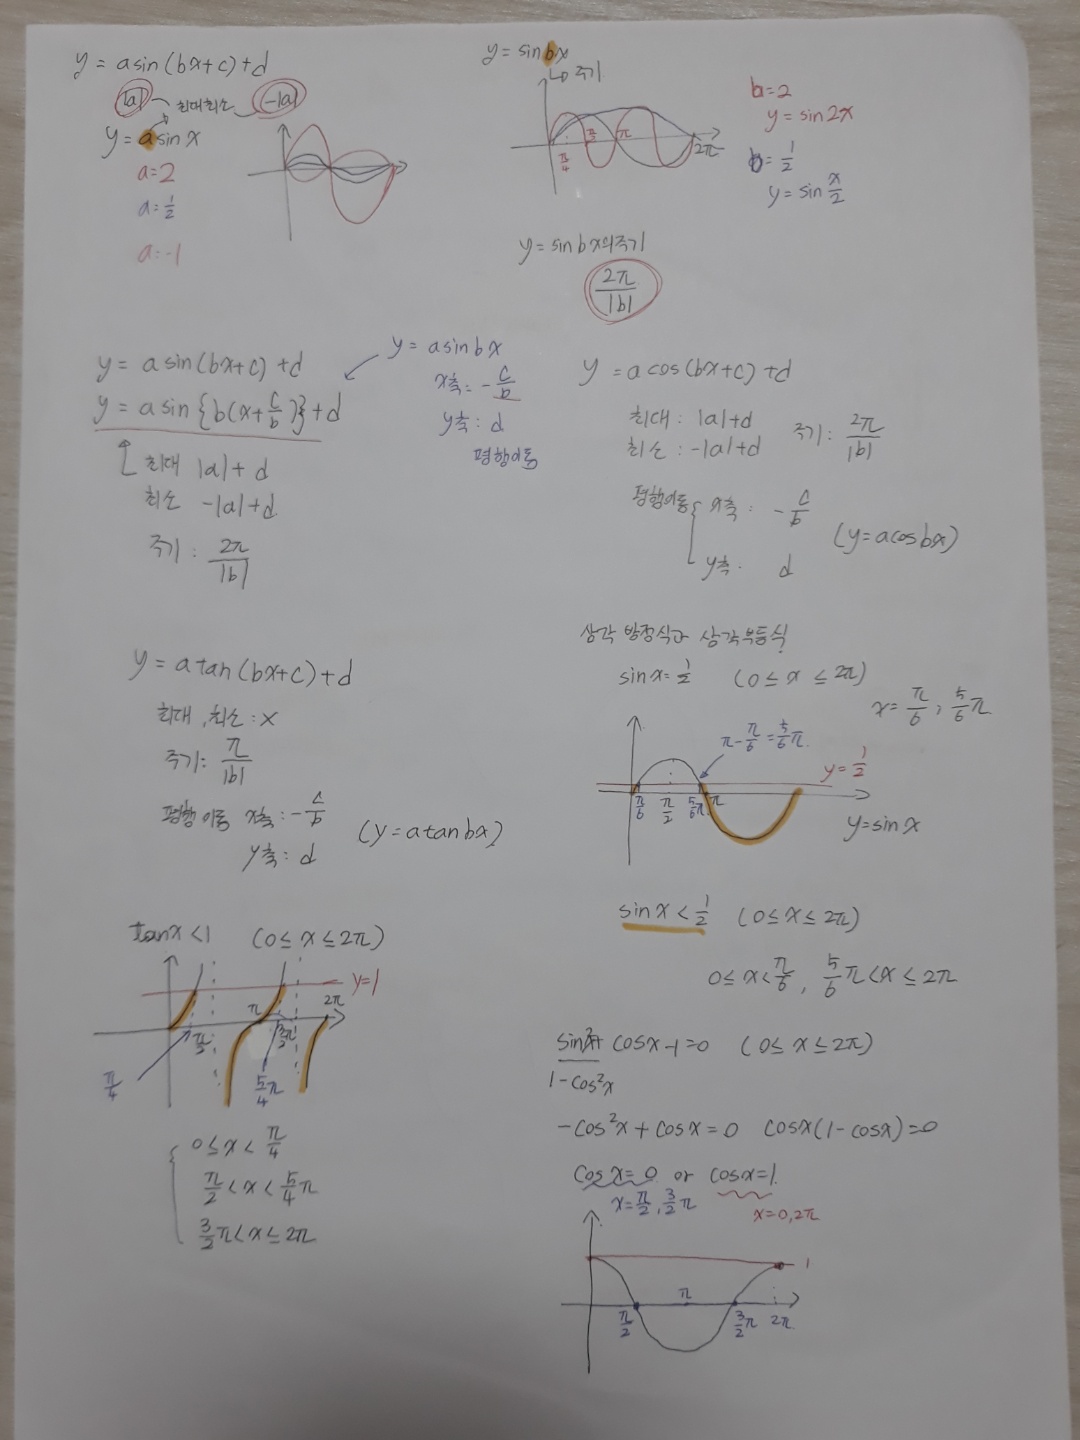 y = asin(bx+c)+d
|a| 최대최소 -|a|
y = asinx
a=2
a=½
a=-1
y = sin bx
↳ 주기
π/4 π/2 π 2π
b=2
y = sin2x
b=½
y = sin x/2
y = sin bx의주기
2π/|b|
y = asin(bx+c)+d
y = asin{b(x+c/b)}+d
최대 |a|+d
최소 -|a|+d
주기: 2π/|b|
y = asinbx
x축: -c/b
y축: d
평행이동
y = acos(bx+c)+d
최대: |a|+d
최소: -|a|+d
주기: 2π/|b|
평행이동 { x축: -c/b
y축: d
(y=acosbx)
y = atan(bx+c)+d
최대,최소:x
주기: π/|b|
평행이동 x축: -c/b
y축: d
(y=atanbx)
삼각 방정식과 삼각부등식
sinx=½ (0≤x≤2π)
x= π/6, 5/6π
π-π/6=5/6π
y=½
π/6 π/2 5/6π π
y=sinx
sinx<½ (0≤x≤2π)
0≤x<π/6, 5/6π<x≤2π
tanx<1 (0≤x≤2π)
y=1
π/2 π 3/2π 2π
π/4 5/4π
0≤x<π/4
π/2<x<5/4π
3/2π<x≤2π
sin²x+cosx-1=0 (0≤x≤2π)
1-cos²x
-cos²x+cosx=0 cosx(1-cosx)=0
cosx=0 or cosx=1
x=π/2, 3/2π x=0,2π
1
π/2 π 3/2π 2π